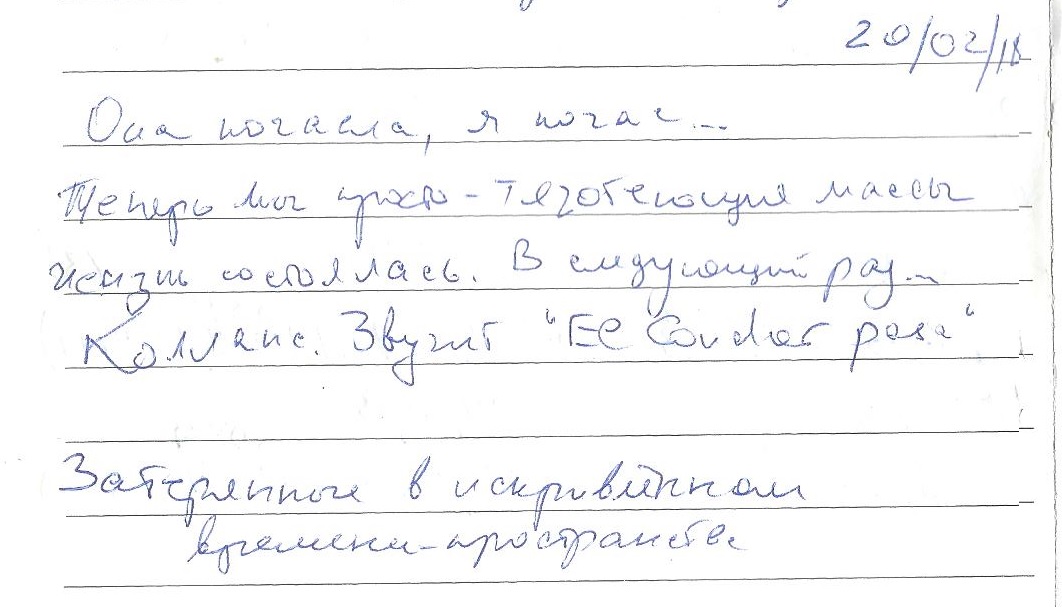 20/02/18
Она погасла, я погас...
Теперь мы просто - тяготеющие массы
Жизнь состоялась. В следующий раз...
Коллапс. Звучит "El Condor pasa"
Затерянные в искривлённом
времени-пространстве